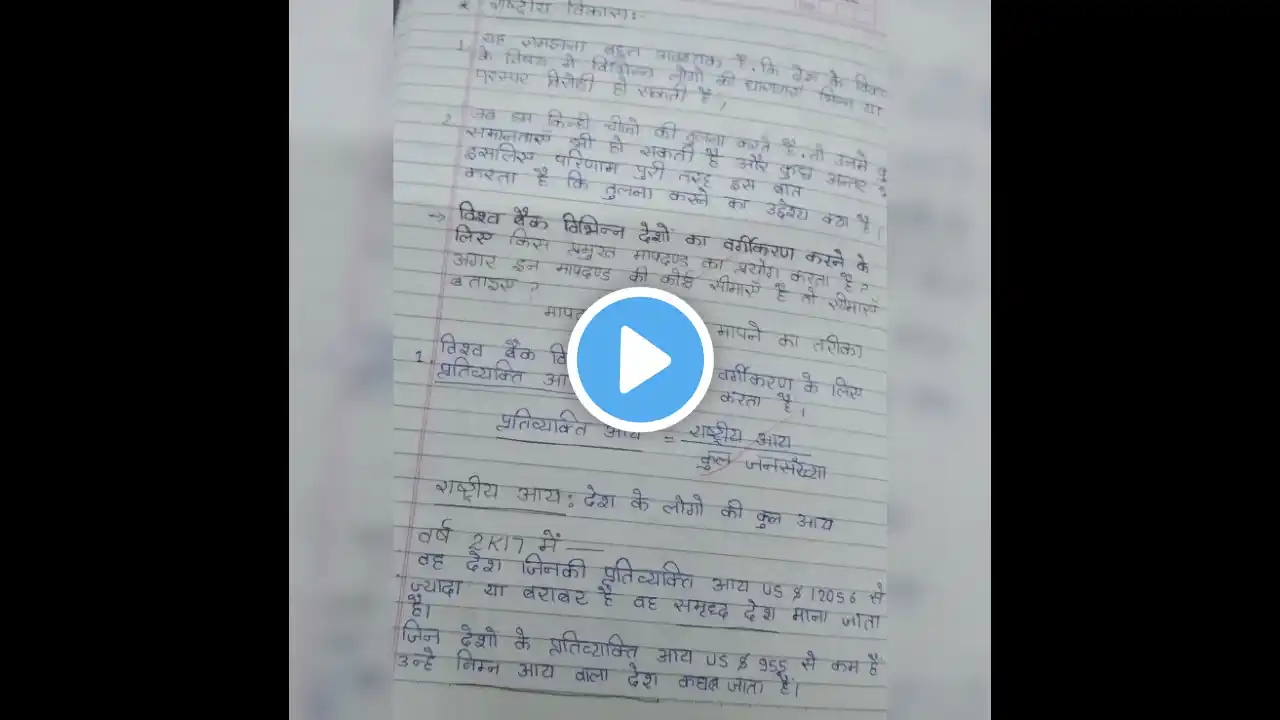 राष्ट्रीय विकास :-
1. यह समझना बहुत आवश्यक है, कि देश के
के विषय में विभिन्न लोगों की धारणाएँ भिन्न या
परस्पर विरोधी हो सकती है,
2. जब हम किन्ही चीजो की तुलना करते है, तो उनमे
समानताएँ भी हो सकती है और कुछ अन्तर
इसलिए परिणाम पुरी तरह इस बात
करता है कि तुलना करने का उद्देश्य क्या है।
→ विश्व बैंक विभिन्न देशों का वर्गीकरण करने के
लिए किस प्रमुख मापदण्ड का प्रयोग करता है?
अगर इन मापदण्ड की कोई सीमाएँ है तो सीमाएँ
बताइए?
मापने का तरीका
1. विश्व बैंक वि वर्गीकरण के लिए
प्रतिव्यक्ति आ करता है।
प्रतिव्यक्ति आय = राष्ट्रीय आय
कुल जनसंख्या
राष्ट्रीय आय : देश के लोगो की कुल आय
वर्ष 2K17 में —
वह देश जिनकी प्रतिव्यक्ति आय US $ 12056 से
ज्यादा या बराबर है वह समृध्द देश माना जाता
है।
जिन देशो के प्रतिव्यक्ति आय US $ 955 से कम है
उन्हे निम्न आय वाला देश जाता है।